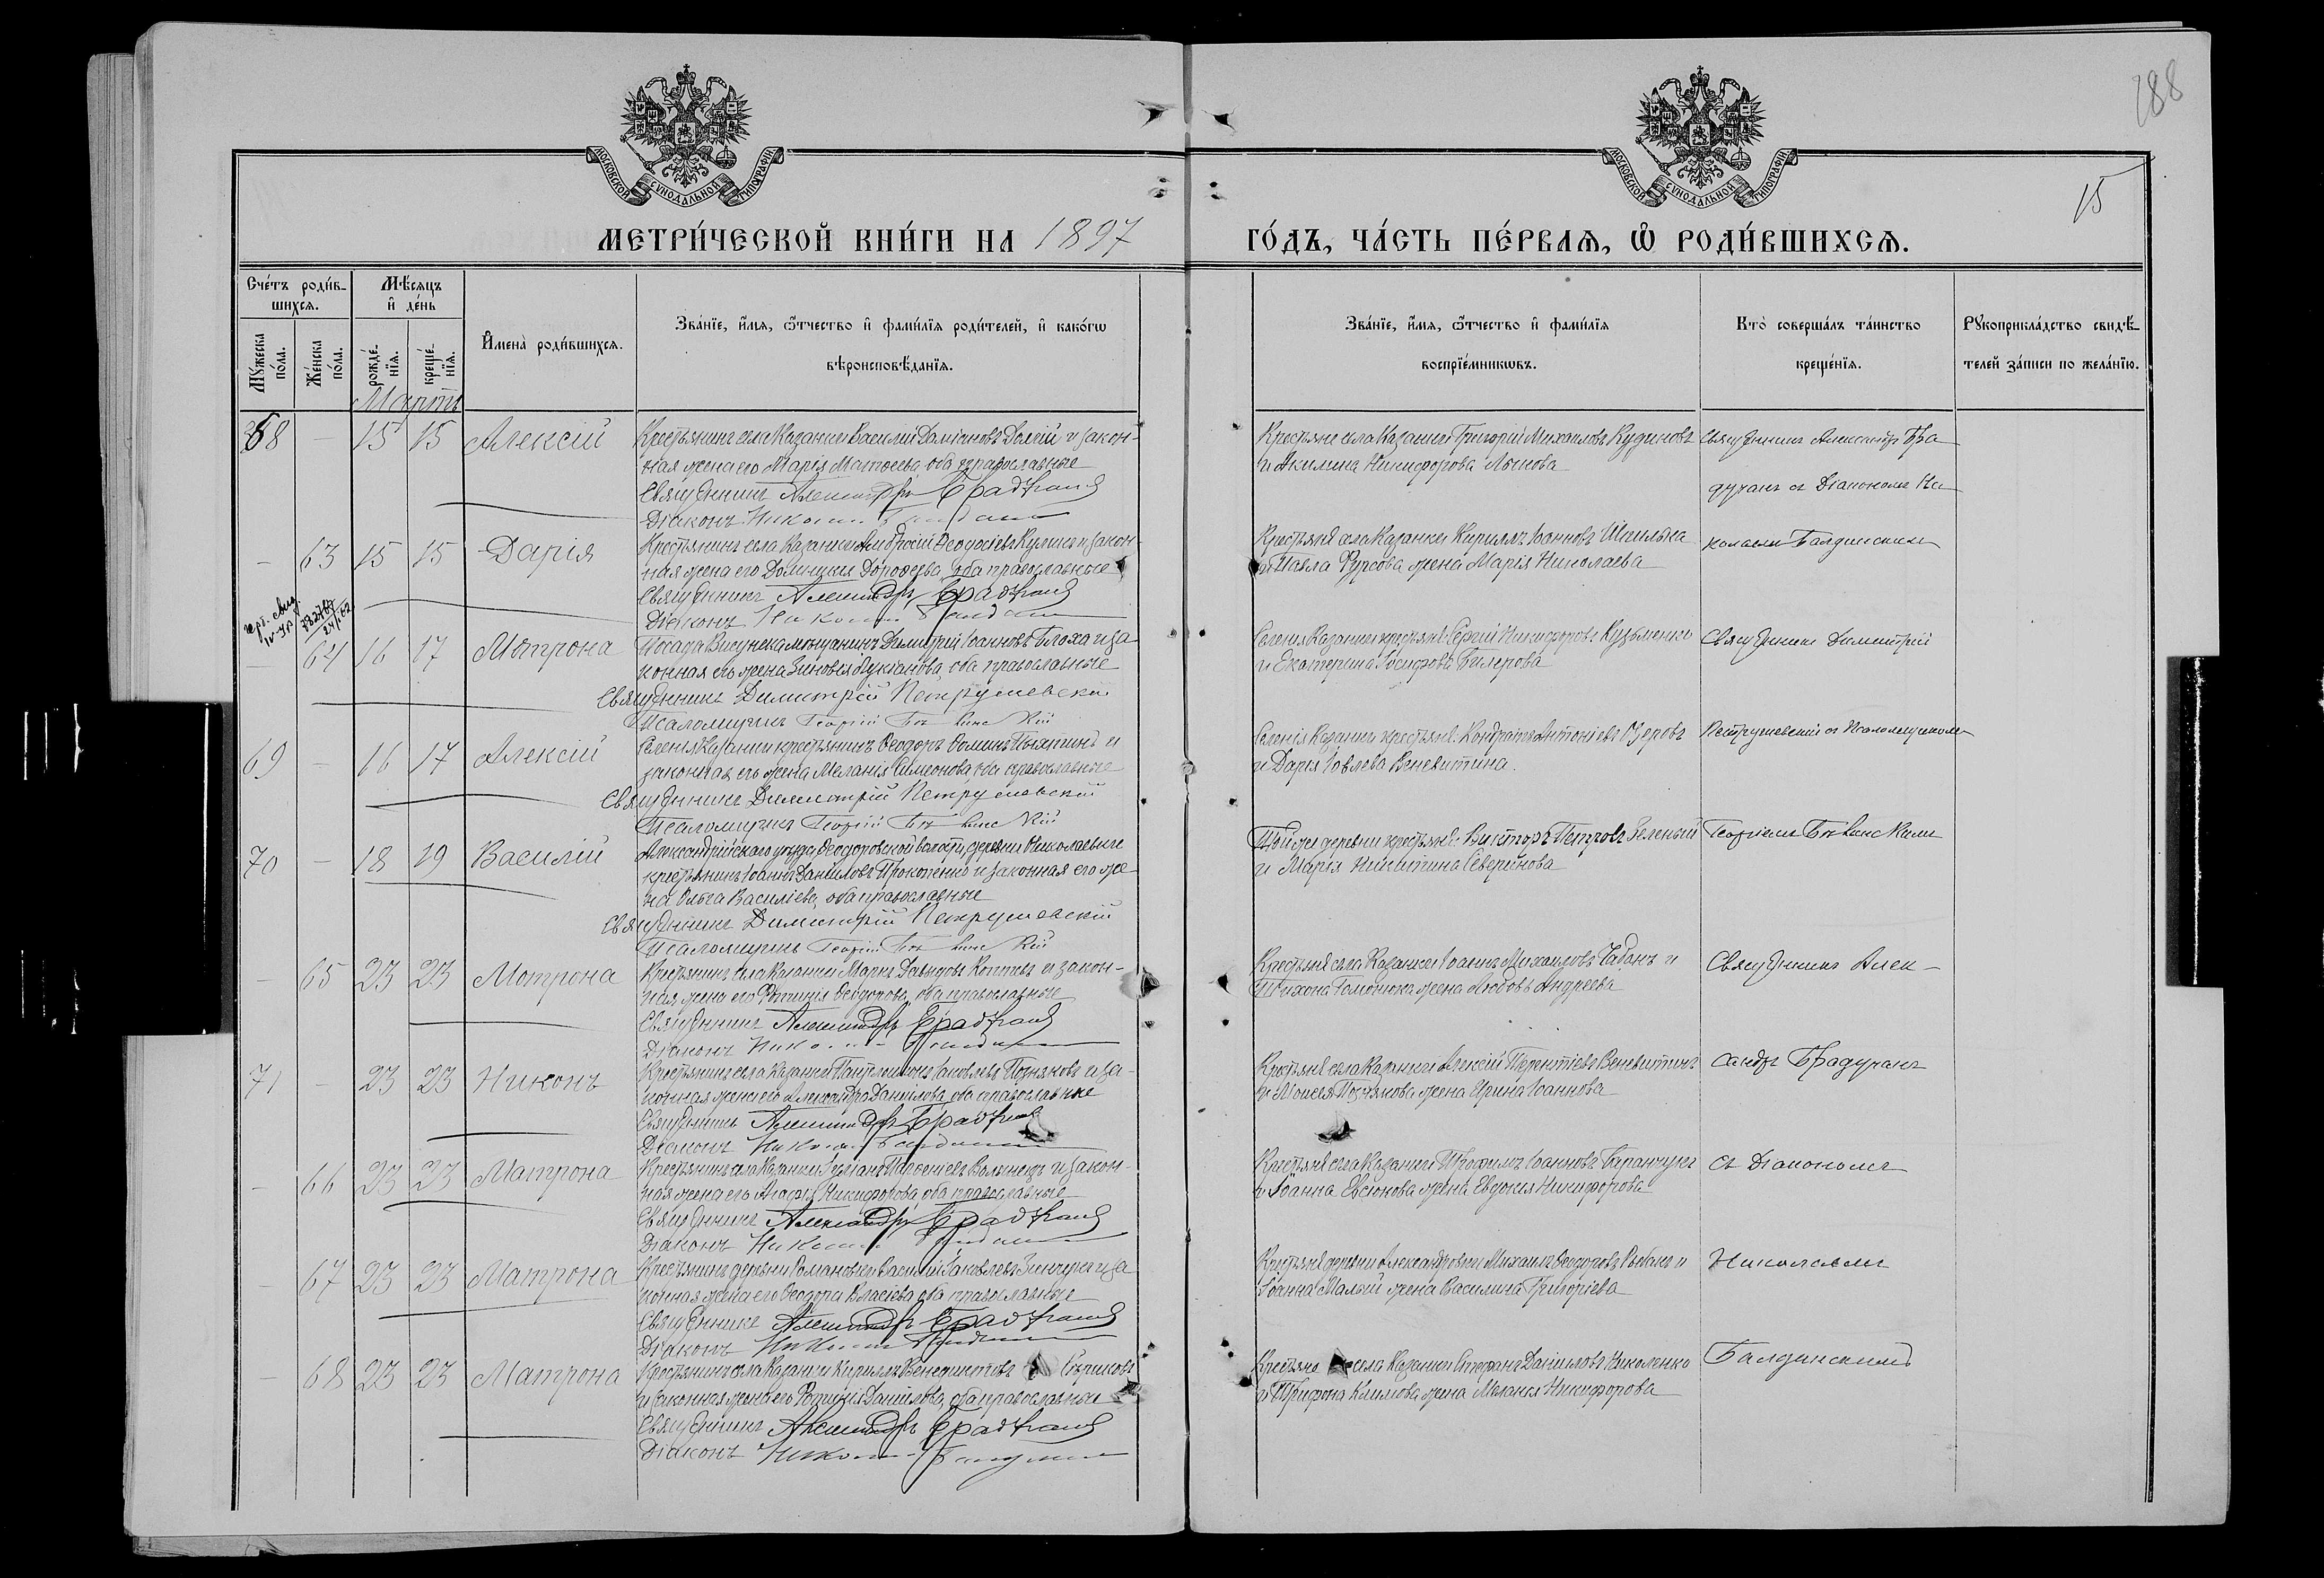 188
МОСКОВСКОЙ СѴНОДАЛЬНОЙ ТИПОГРАФІИ
МОСКОВСКОЙ СѴНОДАЛЬНОЙ ТИПОГРАФІИ
15
МЕТРИ́ЧЕСКОЙ КНИ́ГИ НА 1897
ГО́ДЪ, ЧА́СТЬ ПЕ́РВАѦ, Ѡ РОДИ́ВШИХСѦ.
Сче́тъ роди́в-
шихсѧ.
Мѣ́сѧцъ
и҆ де́нь
Мꙋ́жеска по́ла.
Же́нска по́ла.
рожде́-нїѧ.
креще́-нїѧ.
И҆мена̀ роди́вшихсѧ.
Зва́нїе, и҆́мѧ, ѻ҆́тчество и҆ фами́лїѧ роди́телей, и҆ како́гѡ
вѣроисповѣ́данїѧ.
Зва́нїе, и҆́мѧ, ѻ҆́тчество и҆ фами́лїѧ
воспрїе́мникѡвъ.
Кто̀ соверша́лъ та́инство
креще́нїѧ.
Рꙋкоприкла́дство свидѣ́-
телей за́писи по жела́нїю.
Мартъ
68 – 15 15 Алексій
Крестьянинъ села Казанки Василій Даміановъ и закон-
ная жена его Марія Матѳеева, оба православные
Священникъ Александръ Брадучанъ
Діаконъ Николай
Крестьяне села Казанки Григорій Михаиловъ Кудиновъ
и Акилина Никифорова
Священникъ Александръ Бра-
дучанъ съ Діакономъ Ни-
– 63 15 15 Дарія
Крестьянинъ села Казанки Амвросій Ѳеодосіевъ Куликъ и закон-
ная жена его Домникія Дороѳеева, оба православные
Священникъ Александръ Брадучанъ
Діаконъ Николай
Крестьяне села Казанки Кириллъ Іоанновъ Шпилька
и Павла Фурсова жена Марія Николаева
колаемъ Балдинскимъ
– 64 16 17 Мотрона
Посада Висунска мещанинъ Димитрій Іоанновъ Блоха и за-
конная его жена Зиновія Лукіанова, оба православные
Священникъ Димитрій Петрушевскій
Псаломщикъ Георгій
Селенія Казанки крестьяне Сергій Никифоровъ Кузьменко
и Екатерина Іосифова
Священникъ Димитрій
69 – 16 17 Алексій
Селенія Казанки крестьянинъ Ѳеодоръ Ѳоминъ и
законная его жена Меланія Симеонова, оба православные
Священникъ Димитрій Петрушевскій
Псаломщикъ Георгій
Селенія Казанки крестьяне Кондратъ Антоніевъ Озеровъ
и Дарія Іовлева Веневитина.
Петрушевскій съ Псаломщикомъ
70 – 18 19 Василій
Александрійскаго уезда, Ѳеодоровской волости, деревни Николаевки
крестьянинъ Іоаннъ Даниловъ Прокопенко и законная его же-
на Ольга Василіева, оба православные
Священникъ Димитрій Петрушевскій
Псаломщикъ Георгій
Той же деревни крестьяне Викторъ Петровъ Зеленый
и Марія Никитина Северинова
Георгіемъ
– 65 23 23 Мотрона
Крестьянинъ села Казанки Маркъ Давидовъ и закон-
ная жена его Фотинія Ѳеодорова, оба православные
Священникъ Александръ Брадучанъ
Діаконъ Николай
Крестьяне села Казанки Іоаннъ Михаиловъ Чабанъ и
Тихона жена Любовь Андреева
Священникъ Алек-
71 – 23 23 Никонъ
Крестьянинъ села Казанки Пантелеимонъ Іаковлевъ Позняковъ и за-
конная жена его Александра Данилова, оба православные
Священникъ Александръ Брадучанъ
Діаконъ Николай
Крестьяне села Казанки Алексій Терентіевъ Веневитинъ
и Моисея Познякова жена Ирина Іоаннова
сандръ Брадучанъ
– 66 23 23 Матрона
Крестьянинъ села Казанки и закон-
ная жена его Агафія Никифорова, оба православные
Священникъ Александръ Брадучанъ
Діаконъ Николай
Крестьяне села Казанки Трофимъ Іоанновъ Баранчукъ
и Іоанна Евсюкова жена Евдокія Никифорова
съ Діакономъ
– 67 23 23 Матрона
Крестьянинъ деревни Романовки Василій Іаковлевъ и за-
конная жена его Ѳеодора Власіева, оба православные
Священникъ Александръ Брадучанъ
Діаконъ Николай
Крестьяне деревни Александровки Михаилъ Ѳеодоровъ Рыбакъ и
Іоанна Малый жена Василиса Григоріева
Николаемъ
– 68 23 23 Матрона
Крестьянинъ села Казанки Кириллъ Венедиктовъ
и законная жена его Фотинія Данилова, оба православные
Священникъ Александръ Брадучанъ
Діаконъ Николай
Крестьяне села Казанки Стефанъ Даниловъ Николенко
и Трифона Климова жена Меланія Никифорова
Балдинскимъ